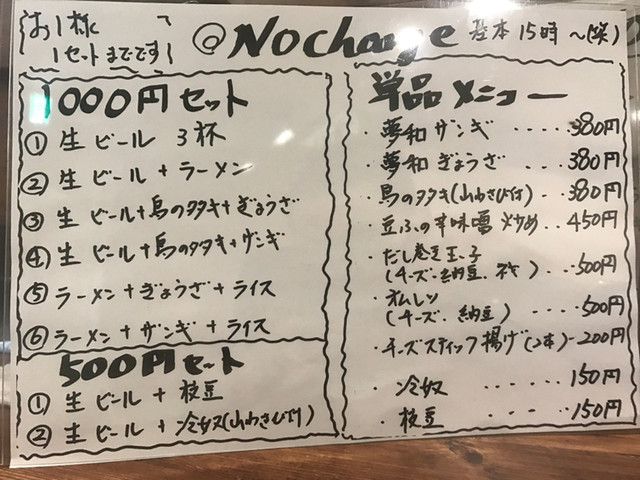 お1様
1セットまでです
@Nocharge 基本15時～(笑)
1000円セット
① 生ビール 3杯
② 生ビール+ラーメン
③ 生ビール+鳥のタタキ+ぎょうざ
④ 生ビール+鳥のタタキ+ザンギ
⑤ ラーメン+ぎょうざ+ライス
⑥ ラーメン+ザンギ+ライス
500円セット
① 生ビール+枝豆
② 生ビール+冷奴(山わさび付)
単品メニュー
・夢和ザンギ ････380円
・夢和ぎょうざ ････380円
・鳥のタタキ(山わさび付)・380円
・豆ふの辛味噌炒め‥450円
・だし巻き玉子
(チーズ・納豆・)‥500円
・オムレツ
(チーズ・納豆)‥‥500円
・チーズスティック揚げ(2本)-200円
・冷奴 ‥‥‥150円
・枝豆 ‥‥150円